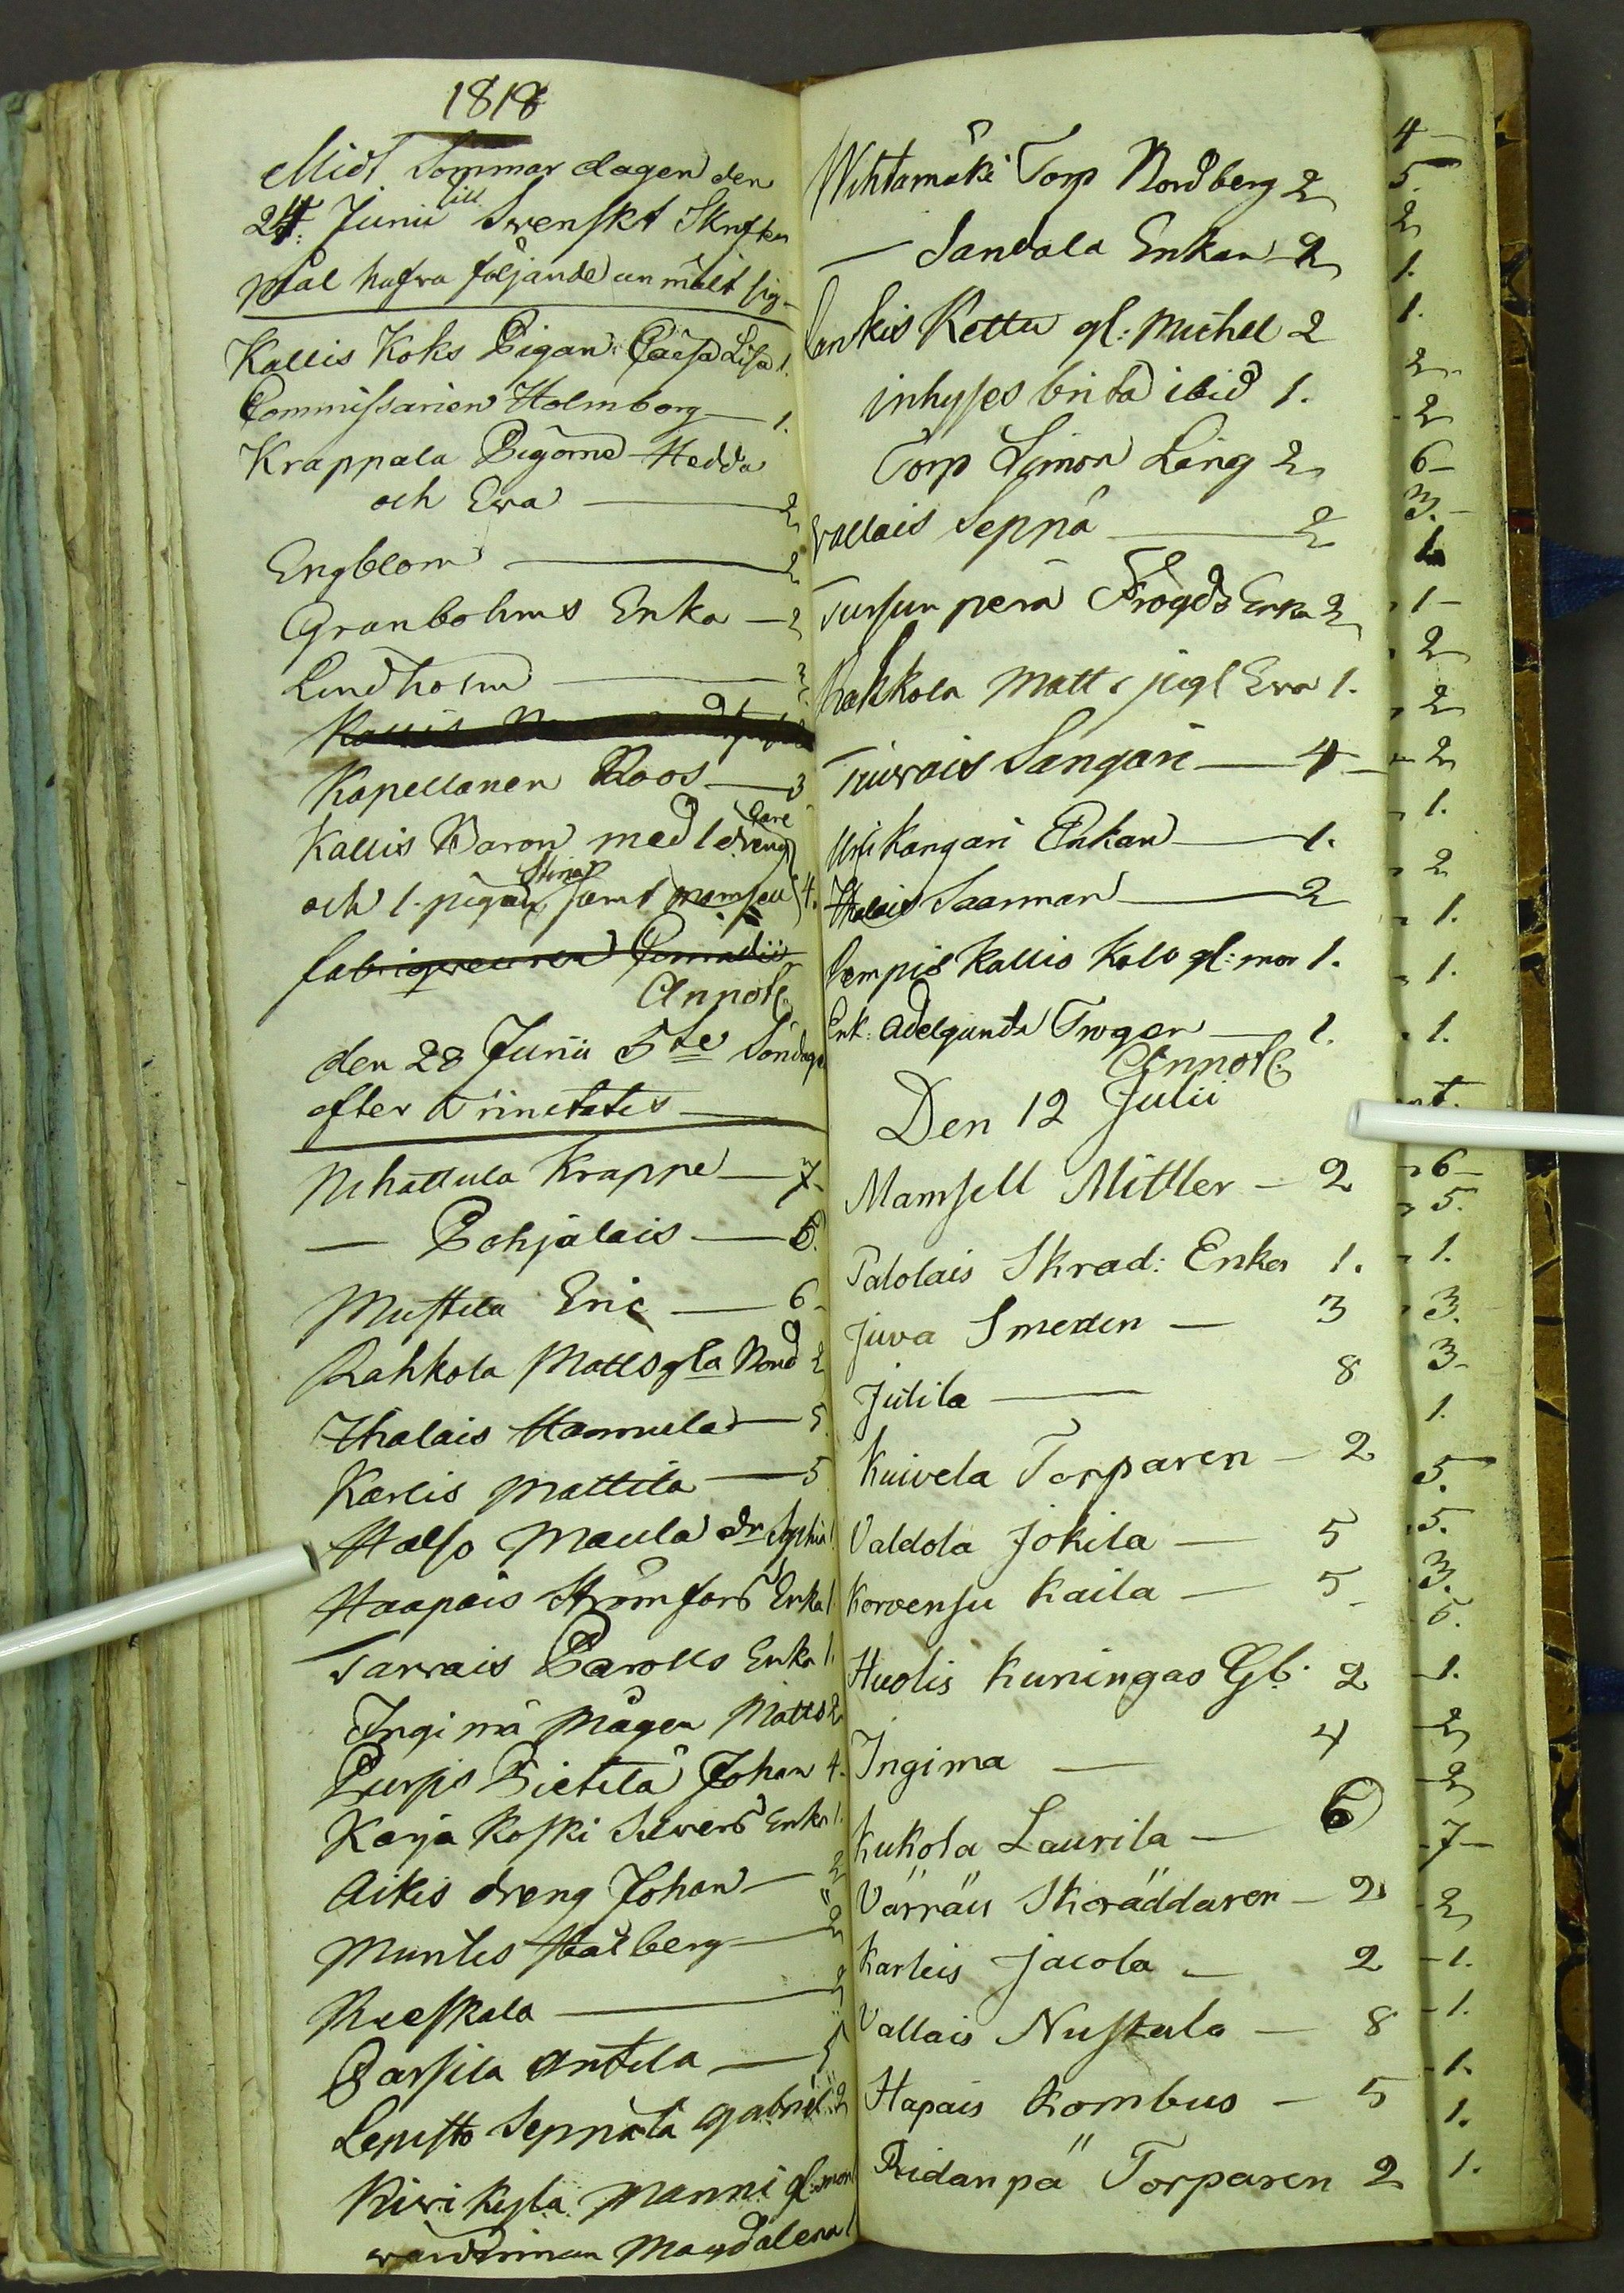 1818
Midt Sommar dagen den
24. Junii till Swenskt Skrifter
mål hafva följande anmält sig
Kallis Koks Pigan Caisa Lisa 1.
Commissarien Holmborg — 1.
Krappala Pigorne Hedda
och Ewa — 2
Engblom — 2
Granbohms Enka — 2
Lindholm — 2
Kapellanen Roos — 3
Kallis Baron med 1 dreng
och 1. pigan Stina samt mamsell 4.
Annot
den 28 Junii 5te Söndage
efter Trinitatis
Nihattula Krappe — 7
— Pohjalais — 5.
Mustila Eric — 6
Rahkola Matts gla Nord 2
Ihalais Hannula — 5
Karlis Mattila — 5
Halso Maula dr Sophia 1
Haapais Strömfors Enka 1.
Tarvais Parolls Enka 1.
Ingimä Mågen Matts 2
Purpis Pietilä Johan 4.
Karja Koski Silvers Enka 1.
Aikis dreng Johan — 2
Muntis Stålberg — 2
Rueskala — 2
Parsila Antila — 5
Lepistö Seppälä Gabriel 2
Kiwi Kylä Manni gl: mor
Magdalena 1
Wihtamäki Torp Nordberg 2
— Sandala Enkan 2
Kettu gl: Michel 2
inhyses brita ibid 1.
Torp Simon Ling 2
Vallais Seppä — 2
Tursun perä Frögds Enka 2
Rahkola Matts pigl Ewa 1.
Sangari — 4
Kangari Enkan — 1.
Ihalais Saarman — 2
Lempis Kallio Kalv gl: mor 1.
Enk: Adelgunda Trogen — 1.
Annot
Den 12 Julii
Mamsell Mittler — 2
Palolais Skrad: Enka 1.
Juva Smeden — 3
Jutila — 8
Kuivela Torparen — 2
Valdola Jokila — 5
Korvensu Kaila — 5
Huolis Kuningas Gb. 2
Ingima — 4
Kukola Laurila — 6
Värräis Skräddaren — 2
Karleis Jacola — 2
Vallais Nustala — 8
Hapais Kombus — 5
Ridanpä Torparen 2
4
5.
2
1.
1.
2
2
6
3.
1
1
2
2
2
1.
2
1.
1.
1.
nt.
6
5.
1.
3.
3
1.
5.
5.
3.
5.
1.
2
2
7
2
1.
1.
1.
1.
1.